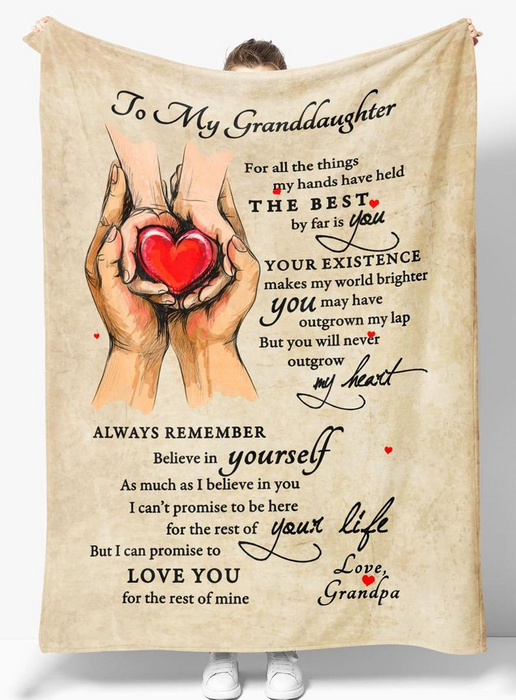 To My Granddaughter
For all the things
my hands have held
THE BEST
by far is you
YOUR EXISTENCE
makes my world brighter
you may have
outgrown my lap
But you will never
outgrow
my heart
ALWAYS REMEMBER
Believe in yourself
As much as I believe in you
I can't promise to be here
for the rest of your life
But I can promise to
LOVE YOU
for the rest of mine
Love,
Grandpa